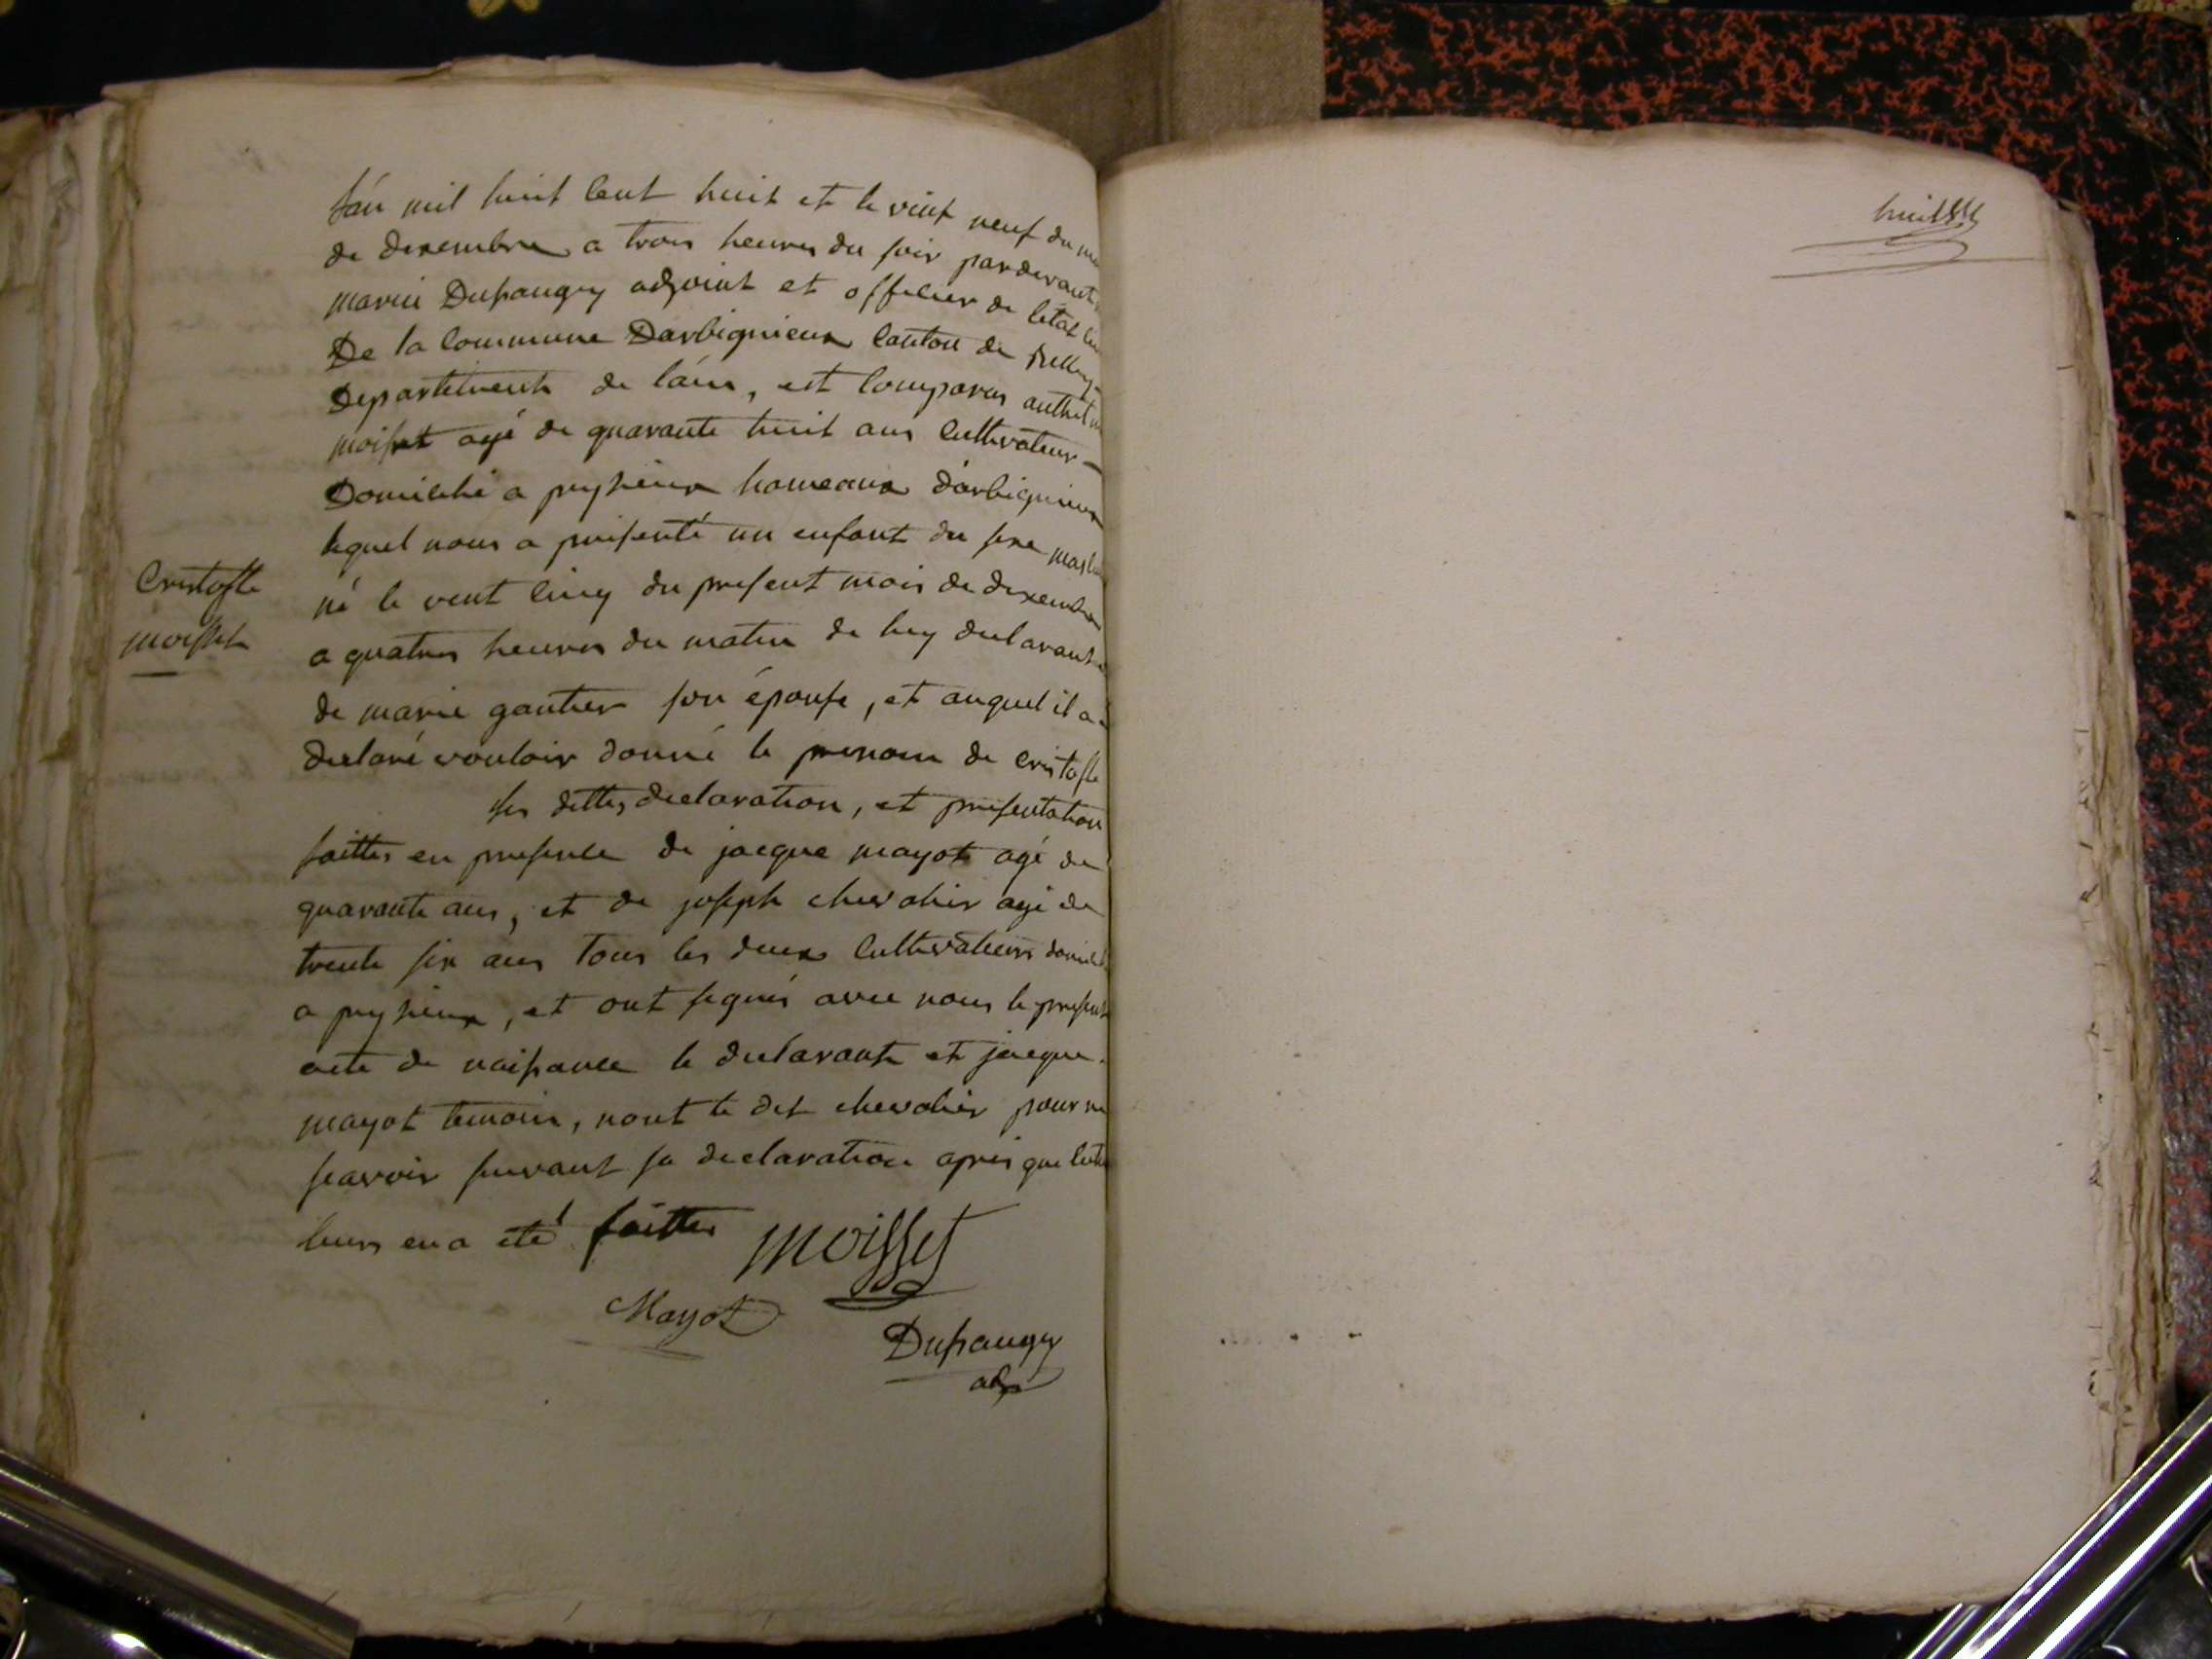 Lán mil huit Cent huit et le vint neuf du
de dexembre a trois heures du soir pardevant
marin Dupaugey adjoint et officier de létat
De la Commune Darbignieux Canton de Belley
Departement de láin, est Comparus anthel
moisset agé de quarante huit ans Cultivateur
Domicilié a peyzieux hameaux d'arbignieux
lequel nous a présenté un enfant du sexe mascu
né le vent Cinq du present mois de dexembre
a quatres heures du matin de luy declarant
Cristofle
moisset
de marie gautier son épouse, et auquel il a
declaré vouloir donné le prenom de cristofle
les dittes declaration, et présentation
faittes en presence de jacque mayot agé de
quarante ans, et de joseph chevalier agé de
trente six ans tous les deux Cultivateurs domicil
a peyzieux, et ont signés avec nous le present
acte de naissance le declarant et jacque
mayot temoin, nont le dit chevalier pour ne
scavoir suivant sa declaration après que lect
leurs en a été faittes moisset
Mayot
Dupaugey
adj